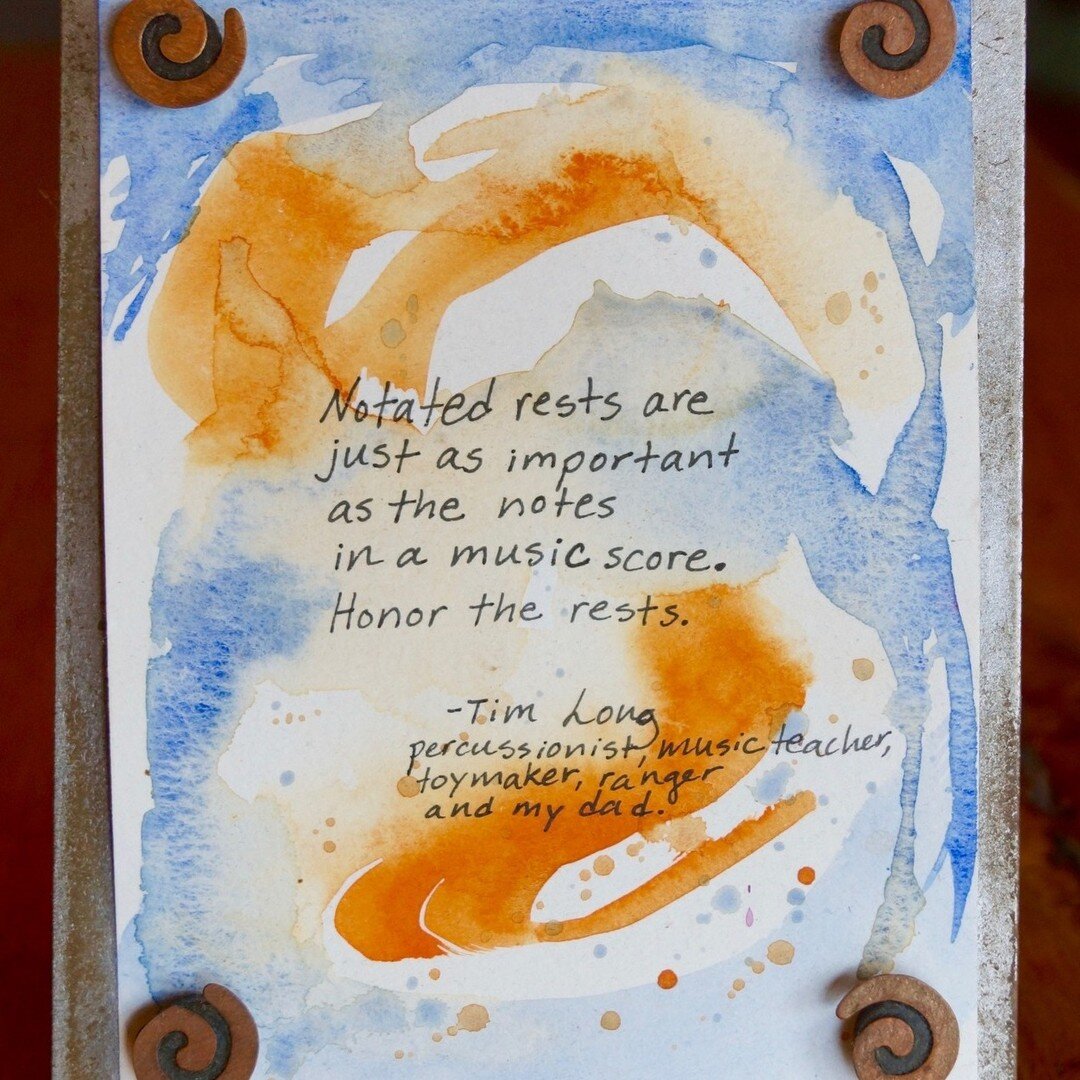 Notated rests are
just as important
as the notes
in a music score.
Honor the rests.
-Tim Long
percussionist, music teacher,
toymaker, ranger
and my dad.